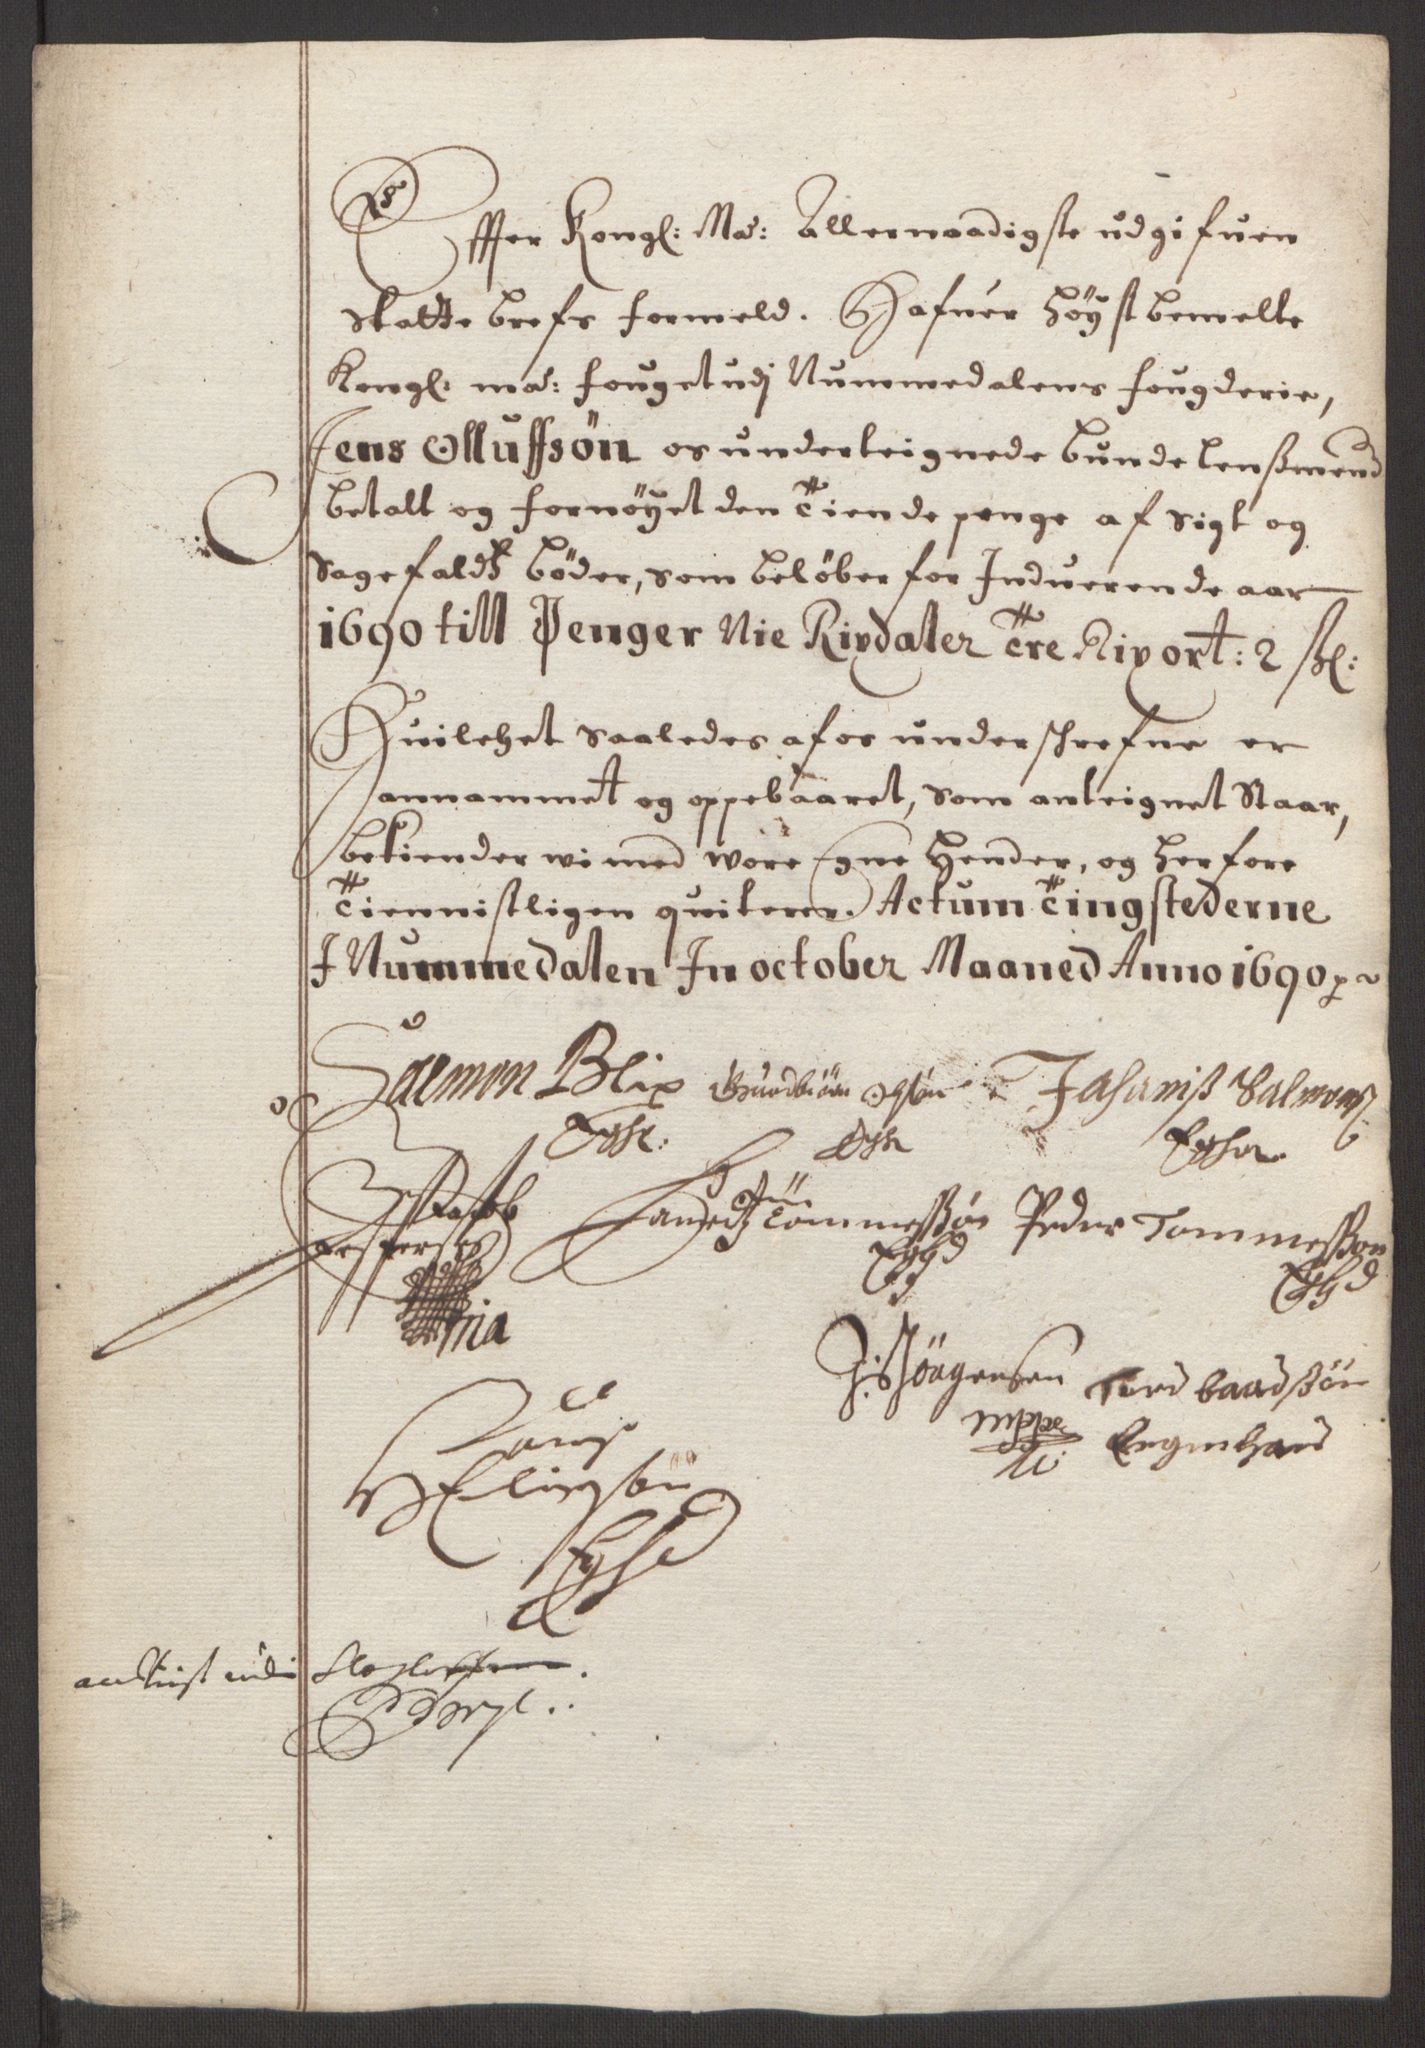 Effter Kongl: Ma: Allernaadigste udgifuen
skatte brefs formeld. Hafuer höÿst bemelte
Kongl: ma: fouget udj Nummedalens fougderie,
Jens Olluffsön os underteignede bunde lensmend
betalt og fornöÿet den Tiende penge af Sigt og
Sagefalds böder, som belöber for Induerende aar
1690 till Penger Nie Rixdaler Tre Rixort: 2 sk:
Huilchet saaledes af os underschrefne er
annammet og oppebaaret, som anteignet Staar,
bekiender wi med wore egne Hender, og herfore
Tiennistligen quiterer. Actum Tingstederne
J Nummedalen In october Maaned Anno 1690
Salmon Blix Gundbiörn Olsön Johannis Salmons:
Jacob Lauridtz Tommessön Peder Tommesson
Jespersen Eghd Ehd
mia
J: Jörgensen Tord baardsön
mppe Eegenhand
Lauris
Ellingsön
Ehd